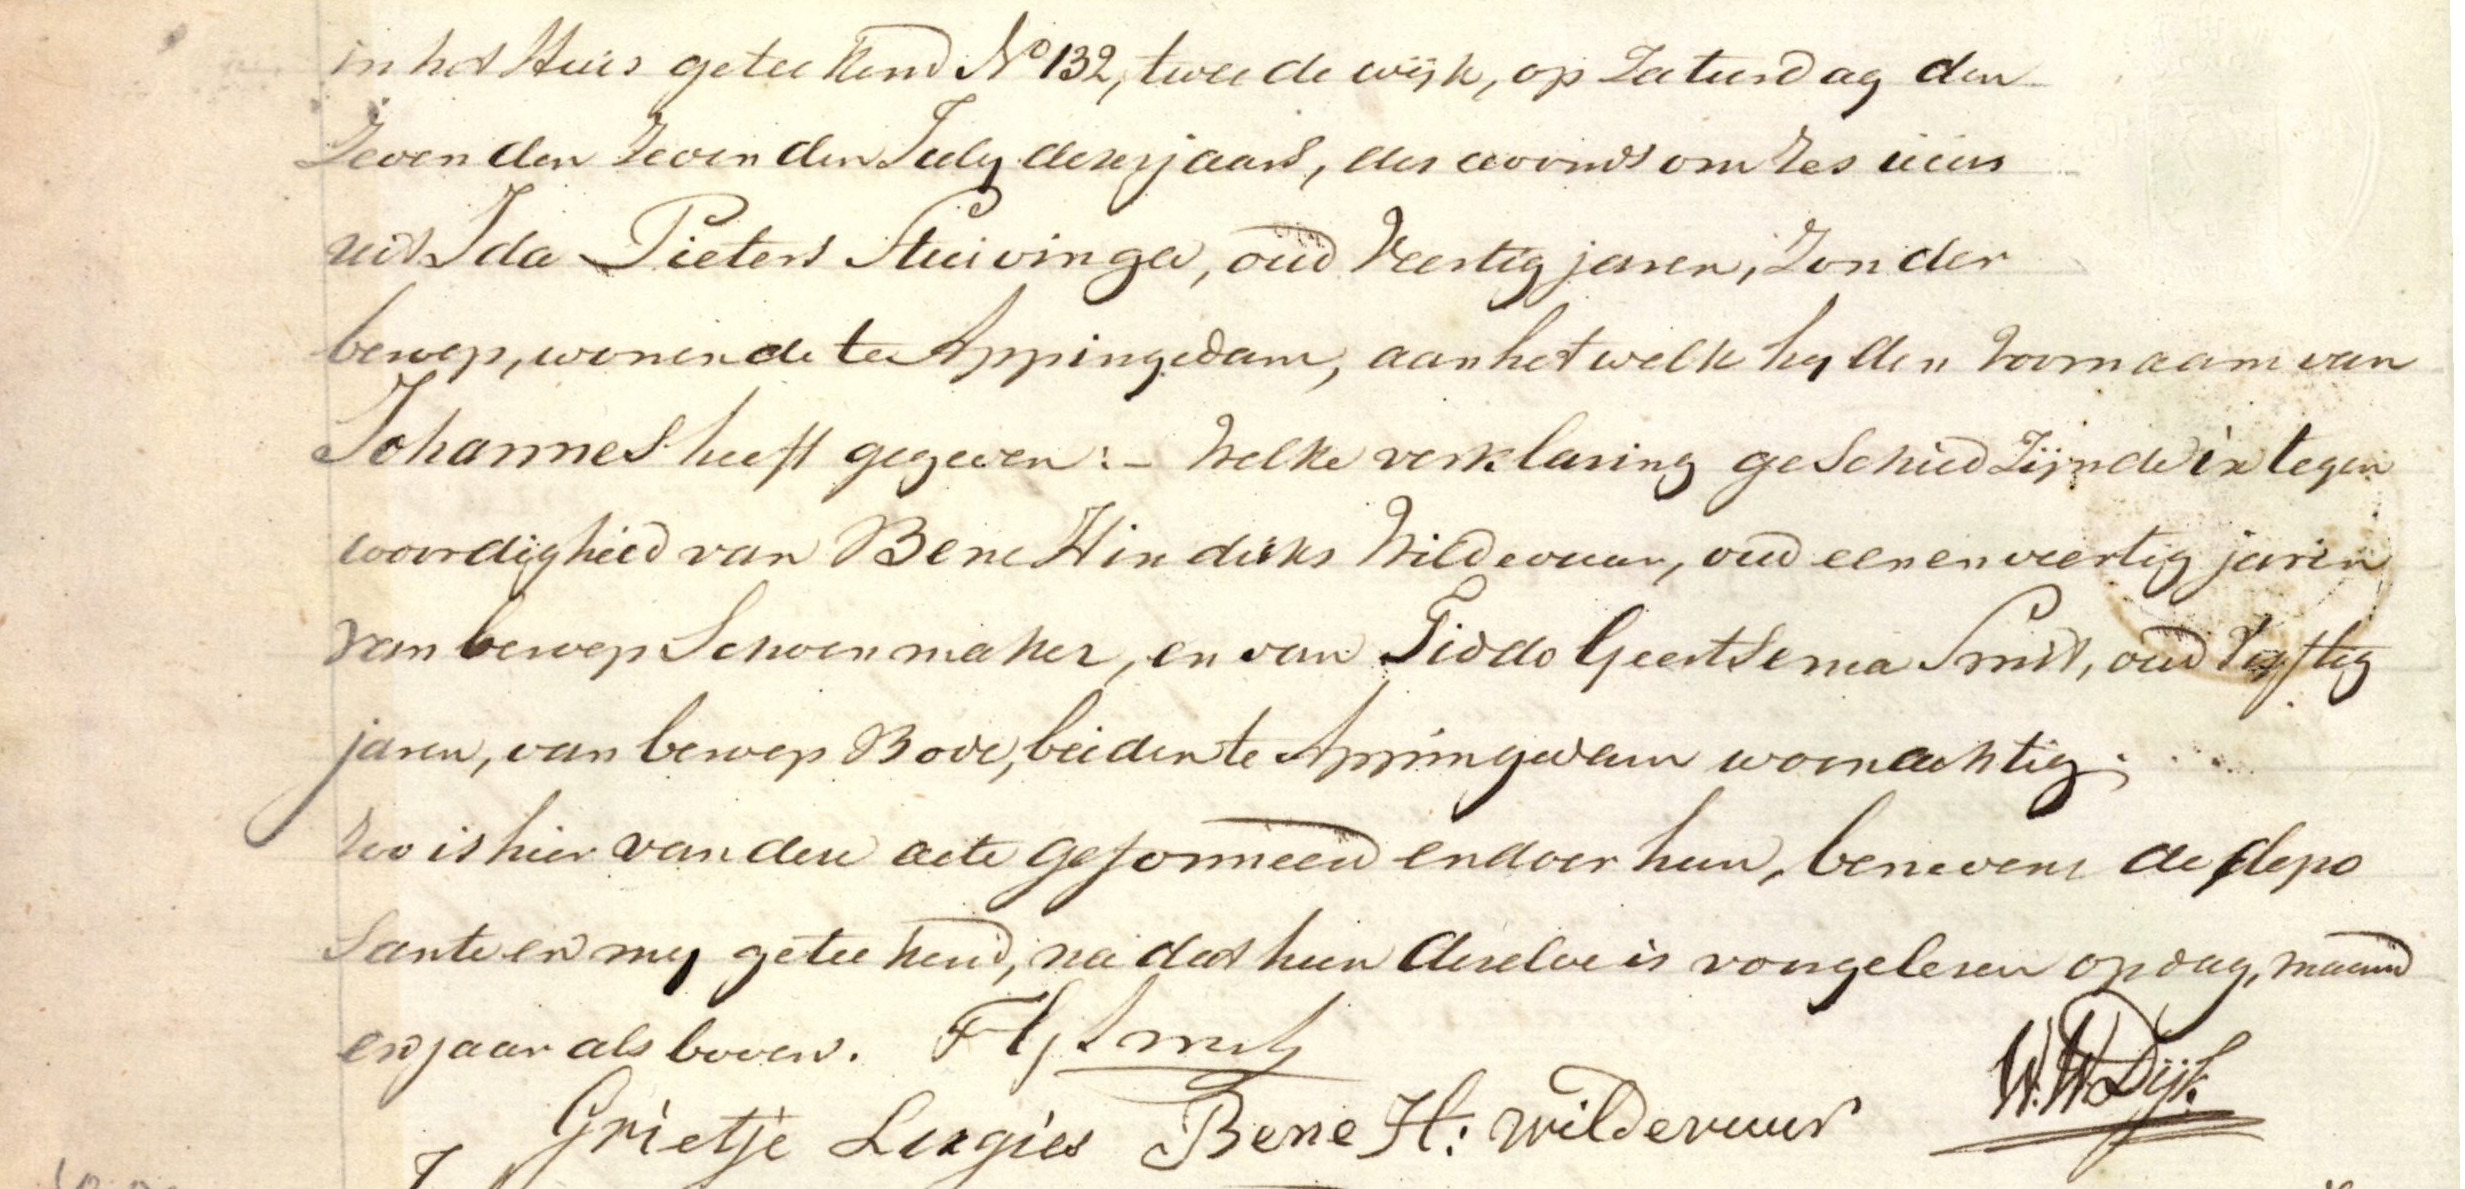 in het Huis geteekend No 132, tweede wijk, op Zaturdag den
Zevenden Zevenden July dezes jaars, des avonds om zes uur
uit Ida Pieters Stuivinga, oud veertig jaren, zonder
beroep, wonende te Appingedam, aan het welk hy den voornaam van
Johannes heeft gegeven:- Welke verklaring geschied zijnde in tegen
woordigheid van Bene Hindriks Wildevuur, oud een en veertig jaren
van beroep Schoenmaker, en van Fiddo Geertsema Smit, oud vyftig
jaren, van beroep Bode, beiden te Appingedam woonachtig;
Zoo is hier van deze acte geformeerd en door hun, benevens de depo
sante en my geteekend, na dat hun dezelve is voorgelezen op dag, maand
en jaar als boven. F G Smit
W. W. Dijk.
Grietje Luxgies Bene H: Wildevuur